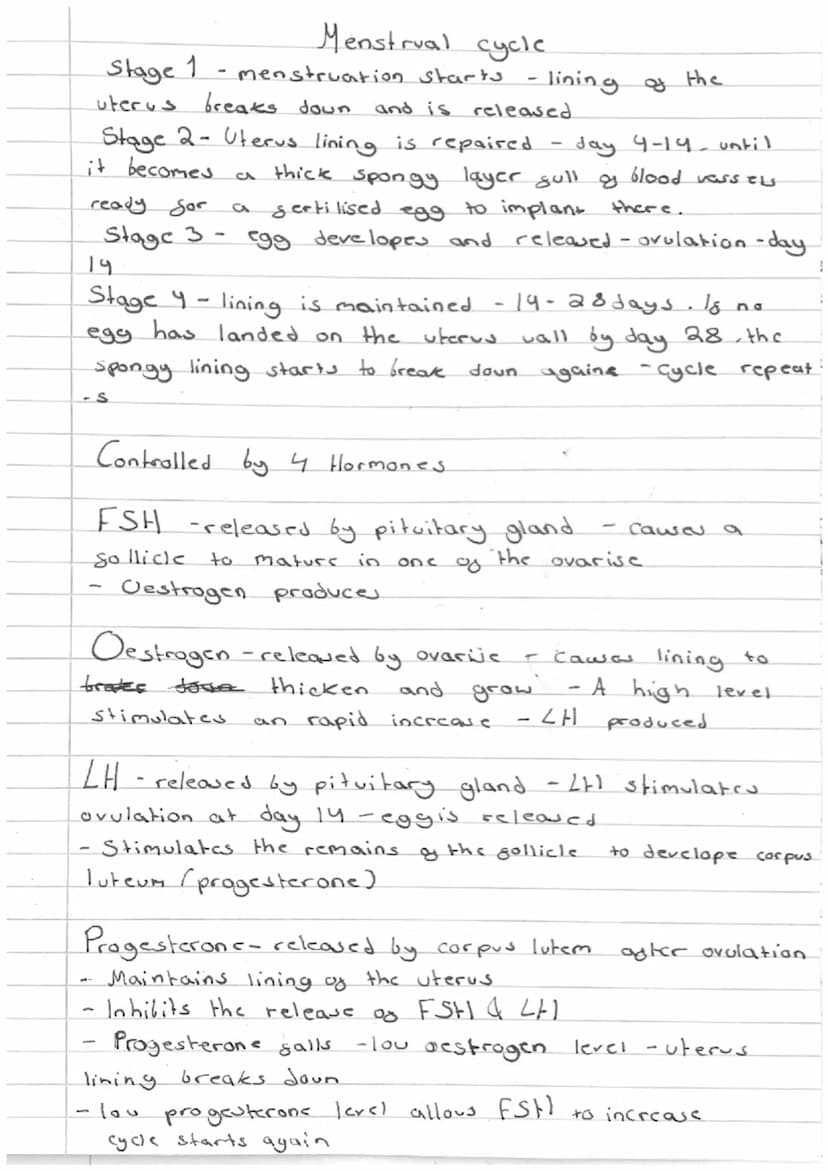 Menstrual cycle
Stage 1 - menstruation starts - lining of the
uterus breaks down and is released
Stage 2 - Uterus lining is repaired - day 4-14 - until
it becomes a thick spongy layer full of blood vessels
ready for a fertilised egg to implant there.
Stage 3 - egg developes and released - ovulation - day
14
Stage 4 - lining is maintained - 14 - 28 days. If no
egg has landed on the uterus wall by day 28, the
spongy lining starts to break down againe - cycle repeat
- s
Controlled by 4 Hormones
FSH - released by pituitary gland - causes a
follicle to mature in one of the ovarise
- Oestrogen produces
Oestrogen - released by ovarise - causes lining to
brake down thicken and grow - A high level
stimulates an rapid increase - LH produced
LH - released by pituitary gland - LH stimulates
ovulation at day 14 - egg is released
- Stimulates the remains of the follicle to develope corpus
luteum (progesterone)
Progesterone - released by corpus lutem after ovulation
- Maintains lining of the uterus
- Inhibits the release of FSH & LH
- Progesterone falls - low oestrogen level - uterus
lining breaks down
- low progesterone level allows FSH to increase
cycle starts again